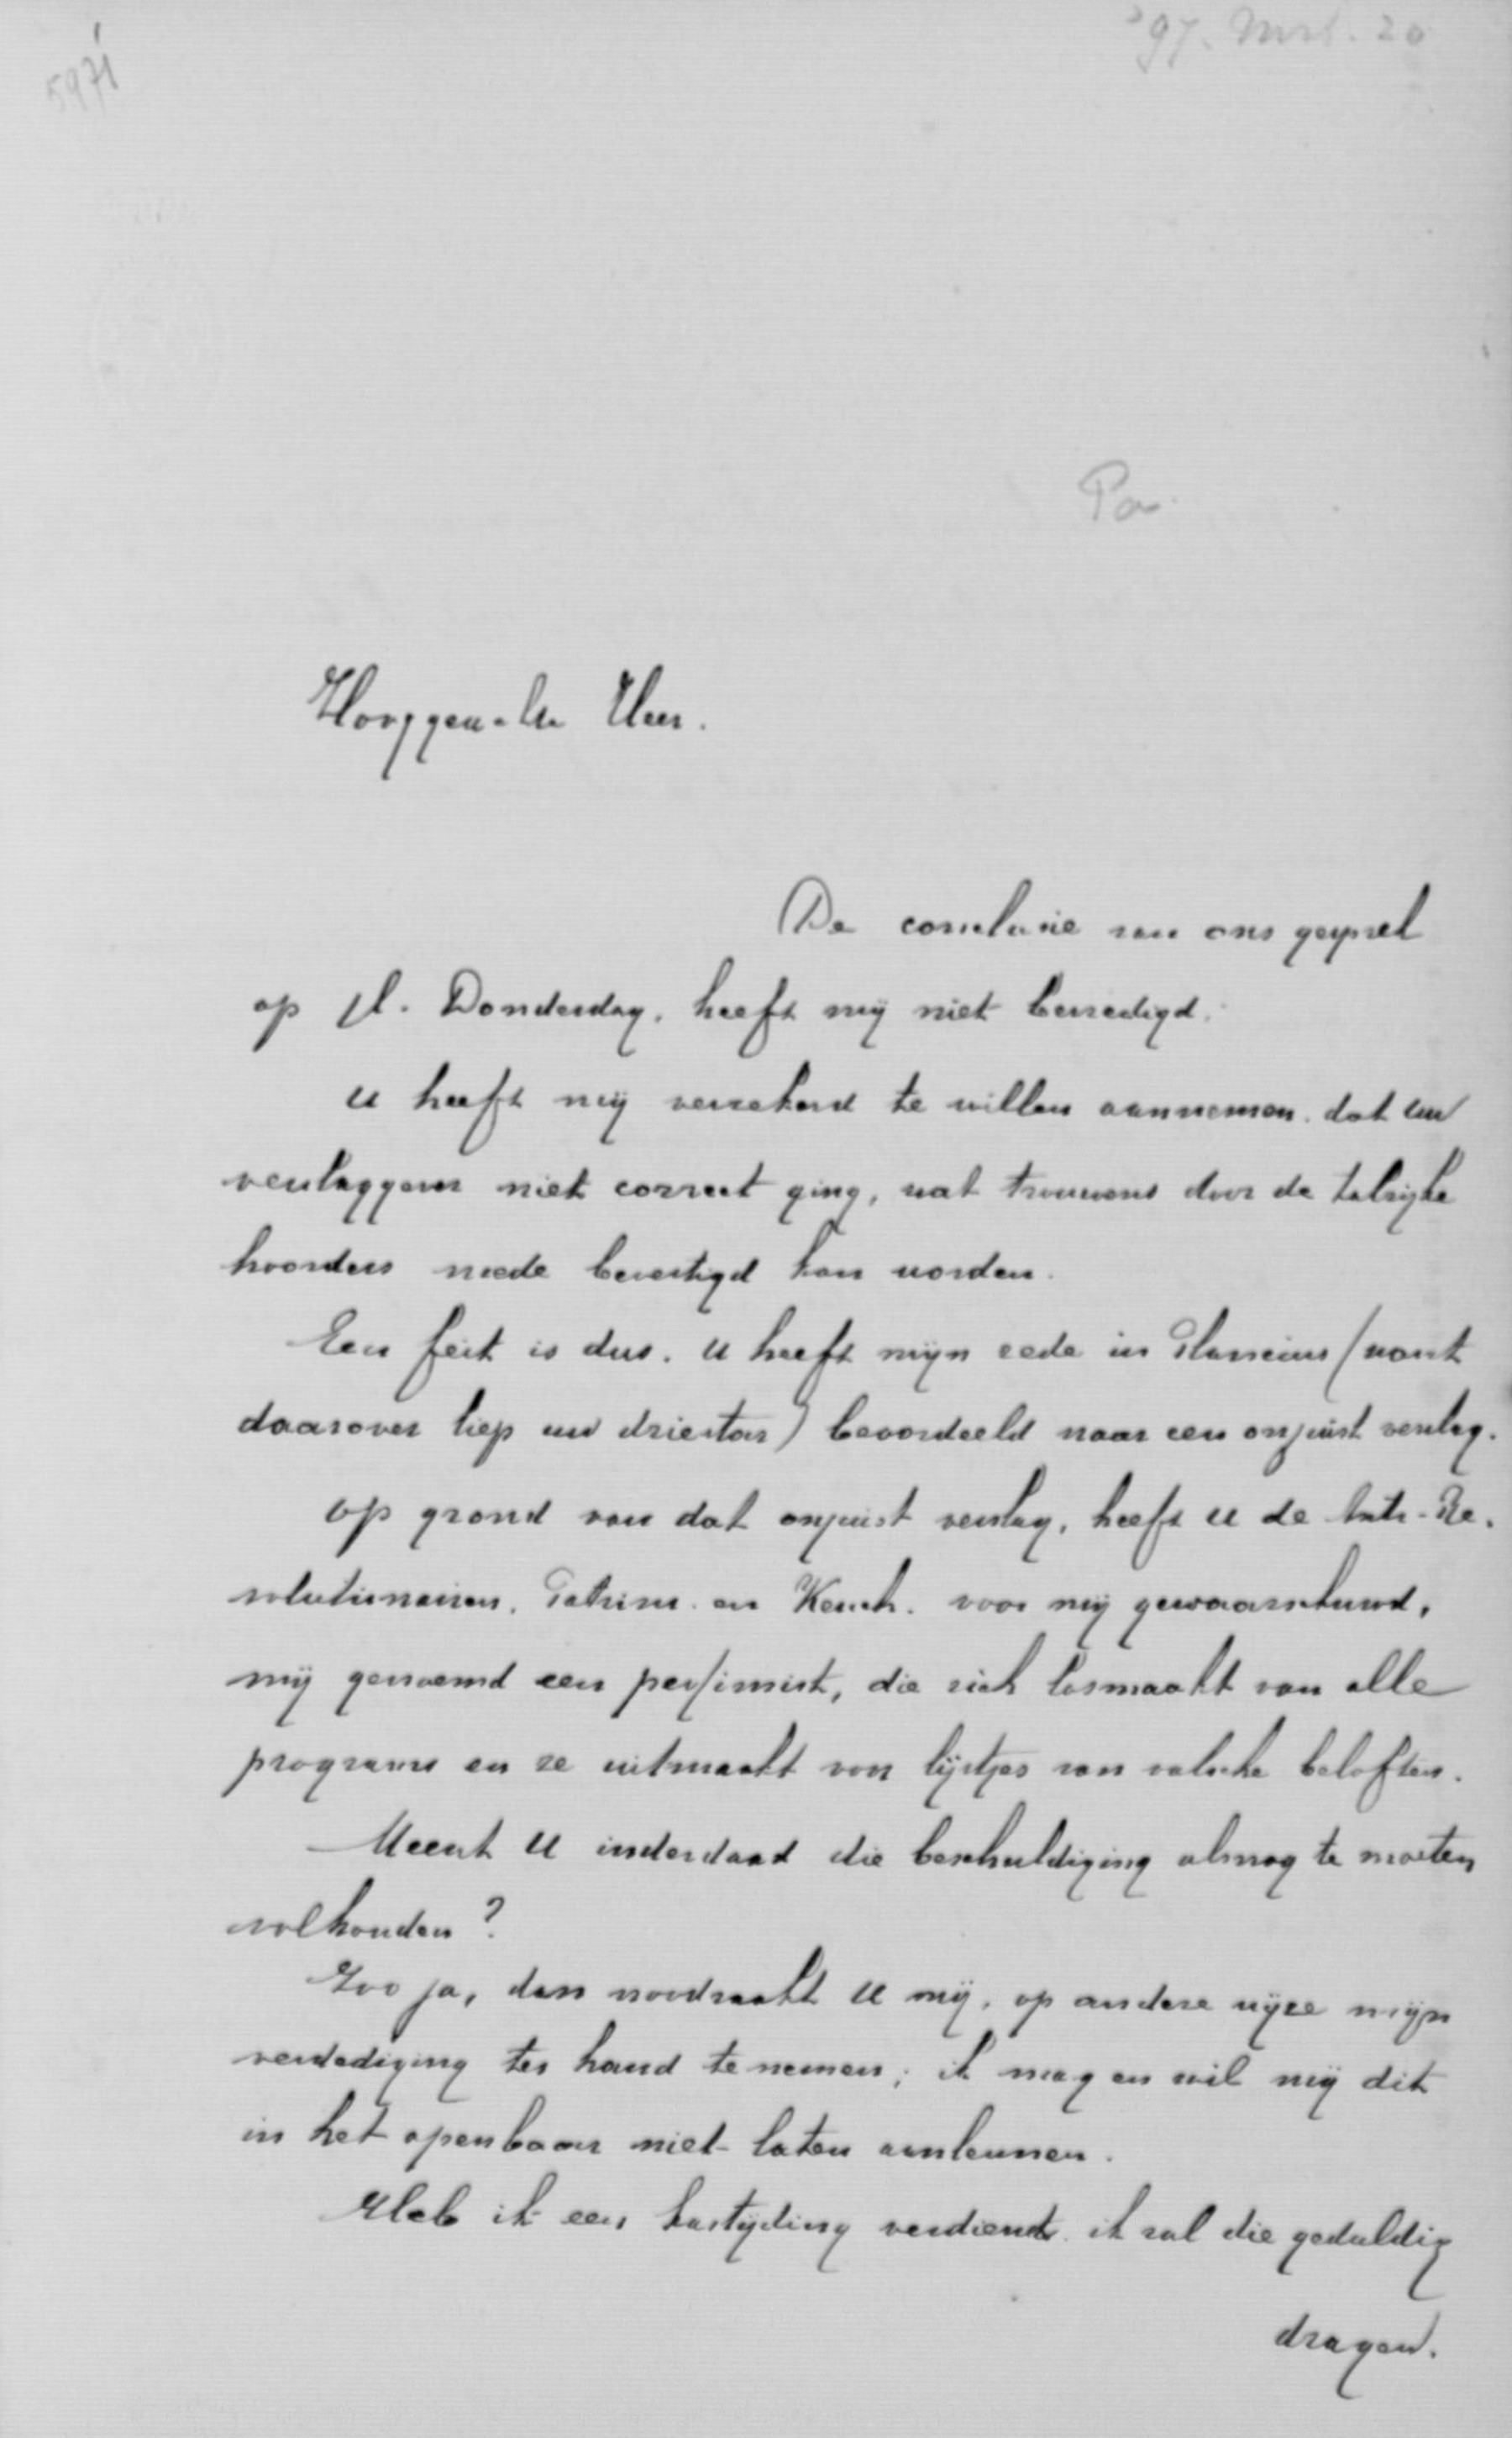 5971
'97. Mrt. 20
Pa
Hooggeachte Heer.
De conclusie van ons gesprek
op jl. Donderdag, heeft mij niet bevredigd.
U heeft mij verzekerd te willen aannemen, dat uw
verslaggever niet correct ging, wat trouwens door de talrijke
hoorders mede bevestigd kan worden.
Een feit is dus, U heeft mijn rede in Plancius (want
daarover liep uw driestar) beoordeeld naar een onjuist verslag.
Op grond van dat onjuist verslag, heeft U de Anti-Re-
volutionairen, Patrim. en Keuch. voor mij gewaarschuwd,
mij genoemd een pessimist, die zich losmaakt van alle
programs en ze uitmaakt voor lijstjes van valsche beloften.
Meent U inderdaad die beschuldiging alsnog te moeten
volhouden?
Zoo ja, dan noodzaakt U mij, op andere wijze mijn
verdediging ter hand te nemen; ik mag en wil mij dit
in het openbaar niet laten aanleunen.
Heb ik een kastijding verdiend, ik zal die geduldig
dragen.